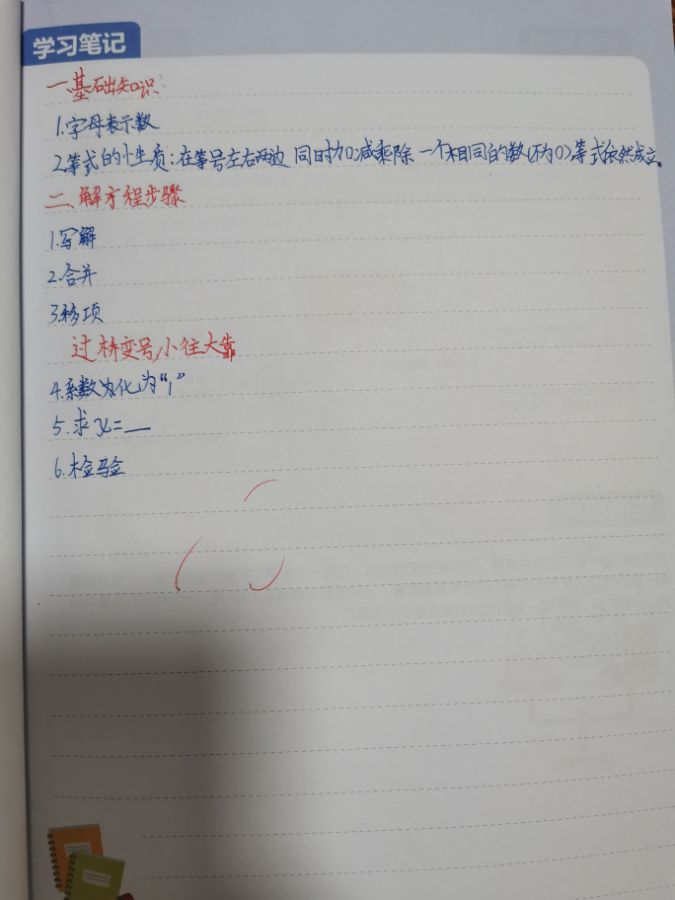 学习笔记
一.基础知识
1.字母表示数
2.等式的小生质:在等号左右两边同时加减乘除一个相同的数(不为0)等式依然成立。
二、解方程步骤
1.写解
2.合并
3.移项
过桥变号,小往大靠
4.系数为化为“1”
5.求x=__
6.检验